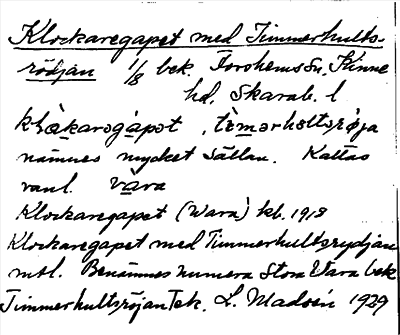 Klockaregapet med Timmerhults-
rödjan 1/8 bek. Forshems Sn, Kinne
hd, Skarab. l
klåkaregapet, temerholtsrøja
nämnes mycket sällan. Kallas
vanl. Vara
Klockaregapet (Wara) kb. 1918
Klockaregapet med Timmerhultsrydjan
mtl. Benämnes numera Stora Wara bek
Timmerhultsröjan Tek. L. Madsén 1929